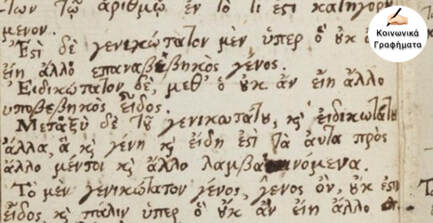 των τῷ ἀριθμῷ ἐν τῷ τί ἐστι κατηγορ
μενον.
Ἔστι δὲ γενικώτατον μὲν ὑπὲρ ὃ οὐκ
εἴη ἄλλο ἐπαναβεβηκὸς γένος.
Εἰδικώτατον δὲ, μεθ' ὃ οὐκ ἂν εἴη ἄλλο
ὑποβεβηκὸς εἶδος.
Μεταξὺ δὲ τοῦ γενικωτάτου, καὶ εἰδικωτάτου
ἄλλα, ἃ καὶ γένη καὶ εἴδη ἐστὶ τὰ αὐτὰ πρὸς
ἄλλο μέντοι καὶ ἄλλο λαμβανόμενα.
Τὸ μὲν γενικώτατον γένος, γένος ὂν, οὐκ ἔστι
εἶδος καὶ πάλιν ὑπὲρ ὃ οὐκ ἂν εἴη ἄλλο
Κοινωνικά
Γραφήματα